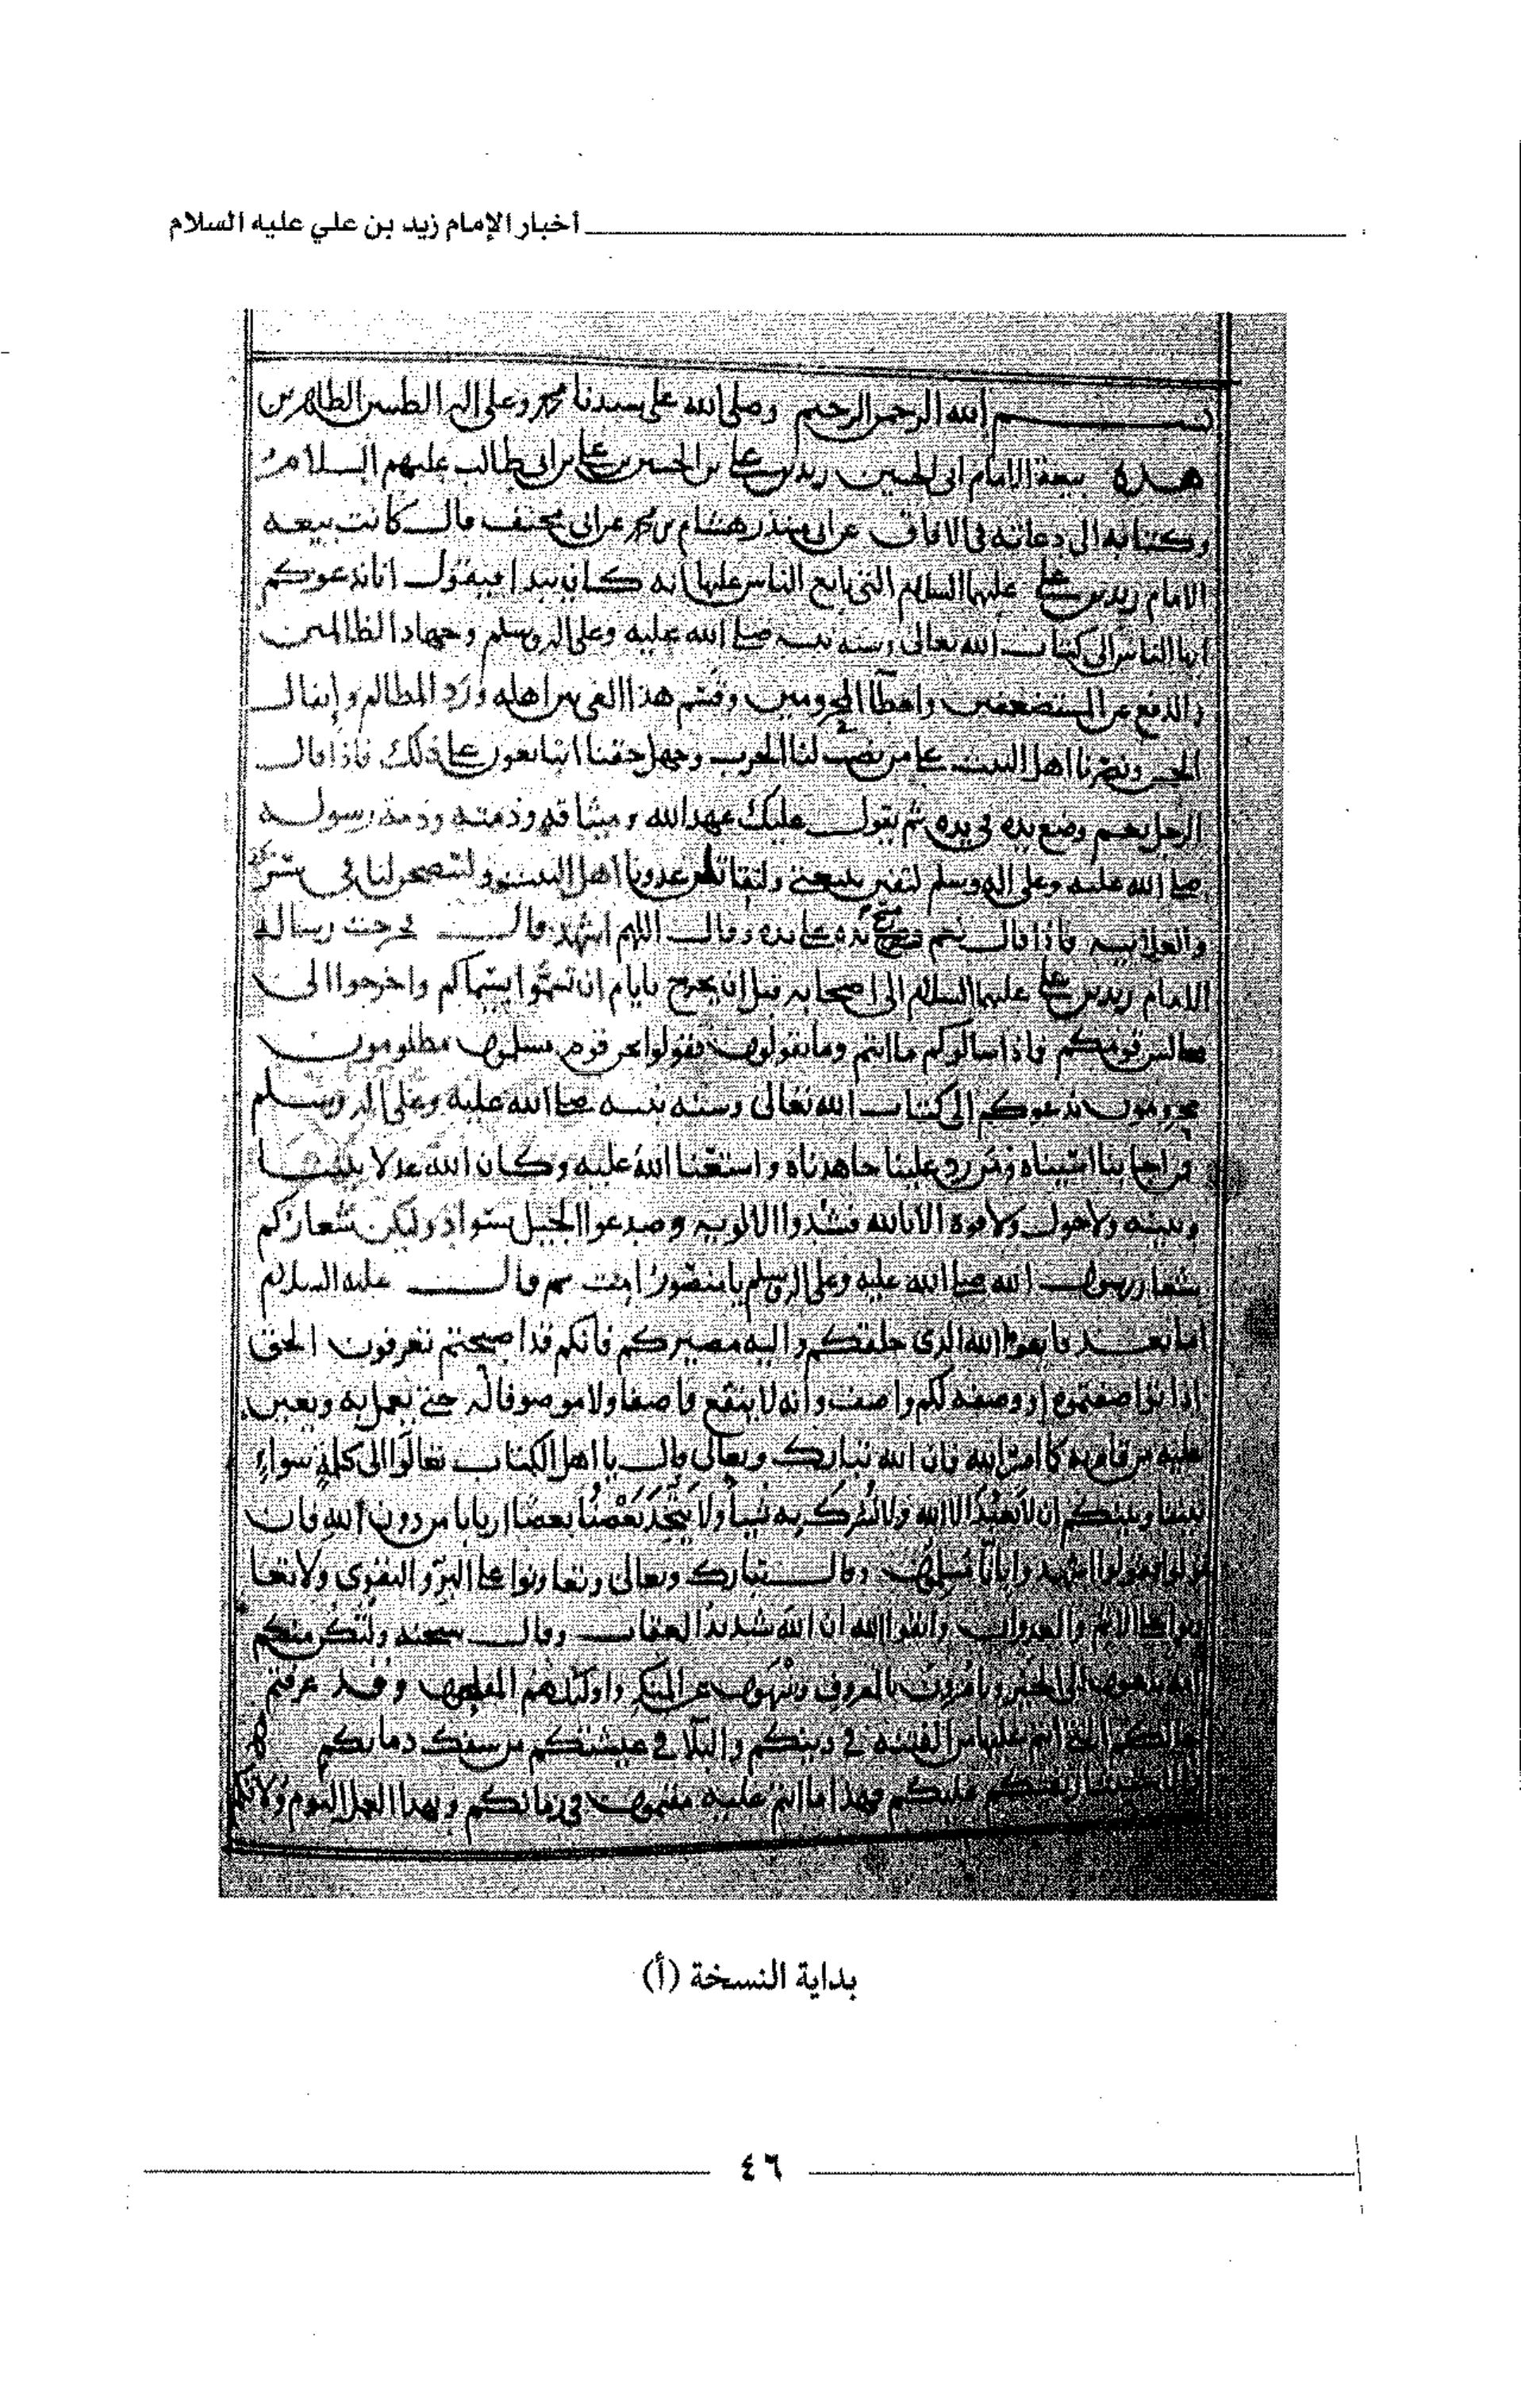 أخبار الإمام زيد بن علي عليه السلام
بسم الله الرحمن الرحيم وصلى الله على سيدنا محمد وعلى اله الطيبين الطاهرين
هذه بيعة الامام ابي الحسين زيد بن علي بن الحسين بن علي بن ابي طالب عليهم السلام
وكتابه الى دعاته في الافاق عن ابي منذر هشام بن محمد عن ابي مخنف قال كانت بيعة
الامام زيد بن علي عليهما السلام التي بايع الناس عليها انه كان يبدا فيقول انا ندعوكم
ايها الناس الى كتاب الله تعالى وسنة نبيه صلى الله عليه وعلى اله وسلم وجهاد الظالمين
والدفع عن المستضعفين واعطآ المحرومين وقسم هذا الفيء بين اهله ورد المظالم
ونصرنا اهل البيت على من نصب لنا الحرب وجهل حقنا اتبايعون على ذلك فاذا قال
الرجل نعم وضع يده في يده ثم يقول عليك عهد الله وميثاقه وذمته وذمة رسوله
صلى الله عليه وعلى اله وسلم لتفين ببيعتي ولتقاتلن عدونا اهل البيت ولتنصحن لنا في السر
والعلانيه فاذا قال نعم مسح يده على يده وقال اللهم اشهد قال فخرجت رسالة
الامام زيد بن علي عليهما السلام الى اصحابه قبل ان يخرج بايام ان واخرجوا الى
مجالس قومكم فاذا سالوكم ما انتم وما تقولون فقولوا نحن قوم مسلمون مظلومون
محرومون ندعوكم الى كتاب الله تعالى وسنة نبيه صلى الله عليه وعلى اله وسلم
من اجابنا ومن رد علينا جاهدناه واستعنا الله عليه وكان الله عدلا بيننا
وبينه ولا حول ولا قوة الا بالله فشدوا الالويه وليكن شعاركم
شعار رسول الله صلى الله عليه وعلى اله وسلم يا منصور امت ثم قال عليه السلام
اما بعد الله الذي خلقكم واليه مصيركم فانكم قد اصبحتم تعرفون الحق
اذا تواصفتموه او وصفه لكم واصف وانه لا ينفع واصفا ولا موصوفا له حتى يعمل به ويعين
عليه من قام به كما امر الله فان الله تبارك وتعالى قال يا اهل الكتاب تعالوا الى كلمة سواء
بيننا وبينكم ان لا نعبد الا الله ولا نشرك به شيئا ولا يتخذ بعضنا بعضا اربابا من دون الله فان
تولوا فقولوا اشهدوا بانا مسلمون وقال تبارك وتعالى وتعاونوا على البر والتقوى ولا تعا
ونوا على الاثم والعدوان واتقوا الله ان الله شديد العقاب وقال سبحنه ولتكن منكم
امة يدعون الى الخير ويامرون بالمعروف وينهون عن المنكر واولئك هم المفلحون وقد عرفتم
حالكم التي انتم عليها من الفتنة في دينكم والبلآ في عيشتكم من سفك دمائكم
عليكم فهذا ما انتم عليه مقيمون في زمانكم
بداية النسخة (أ)
٤٦